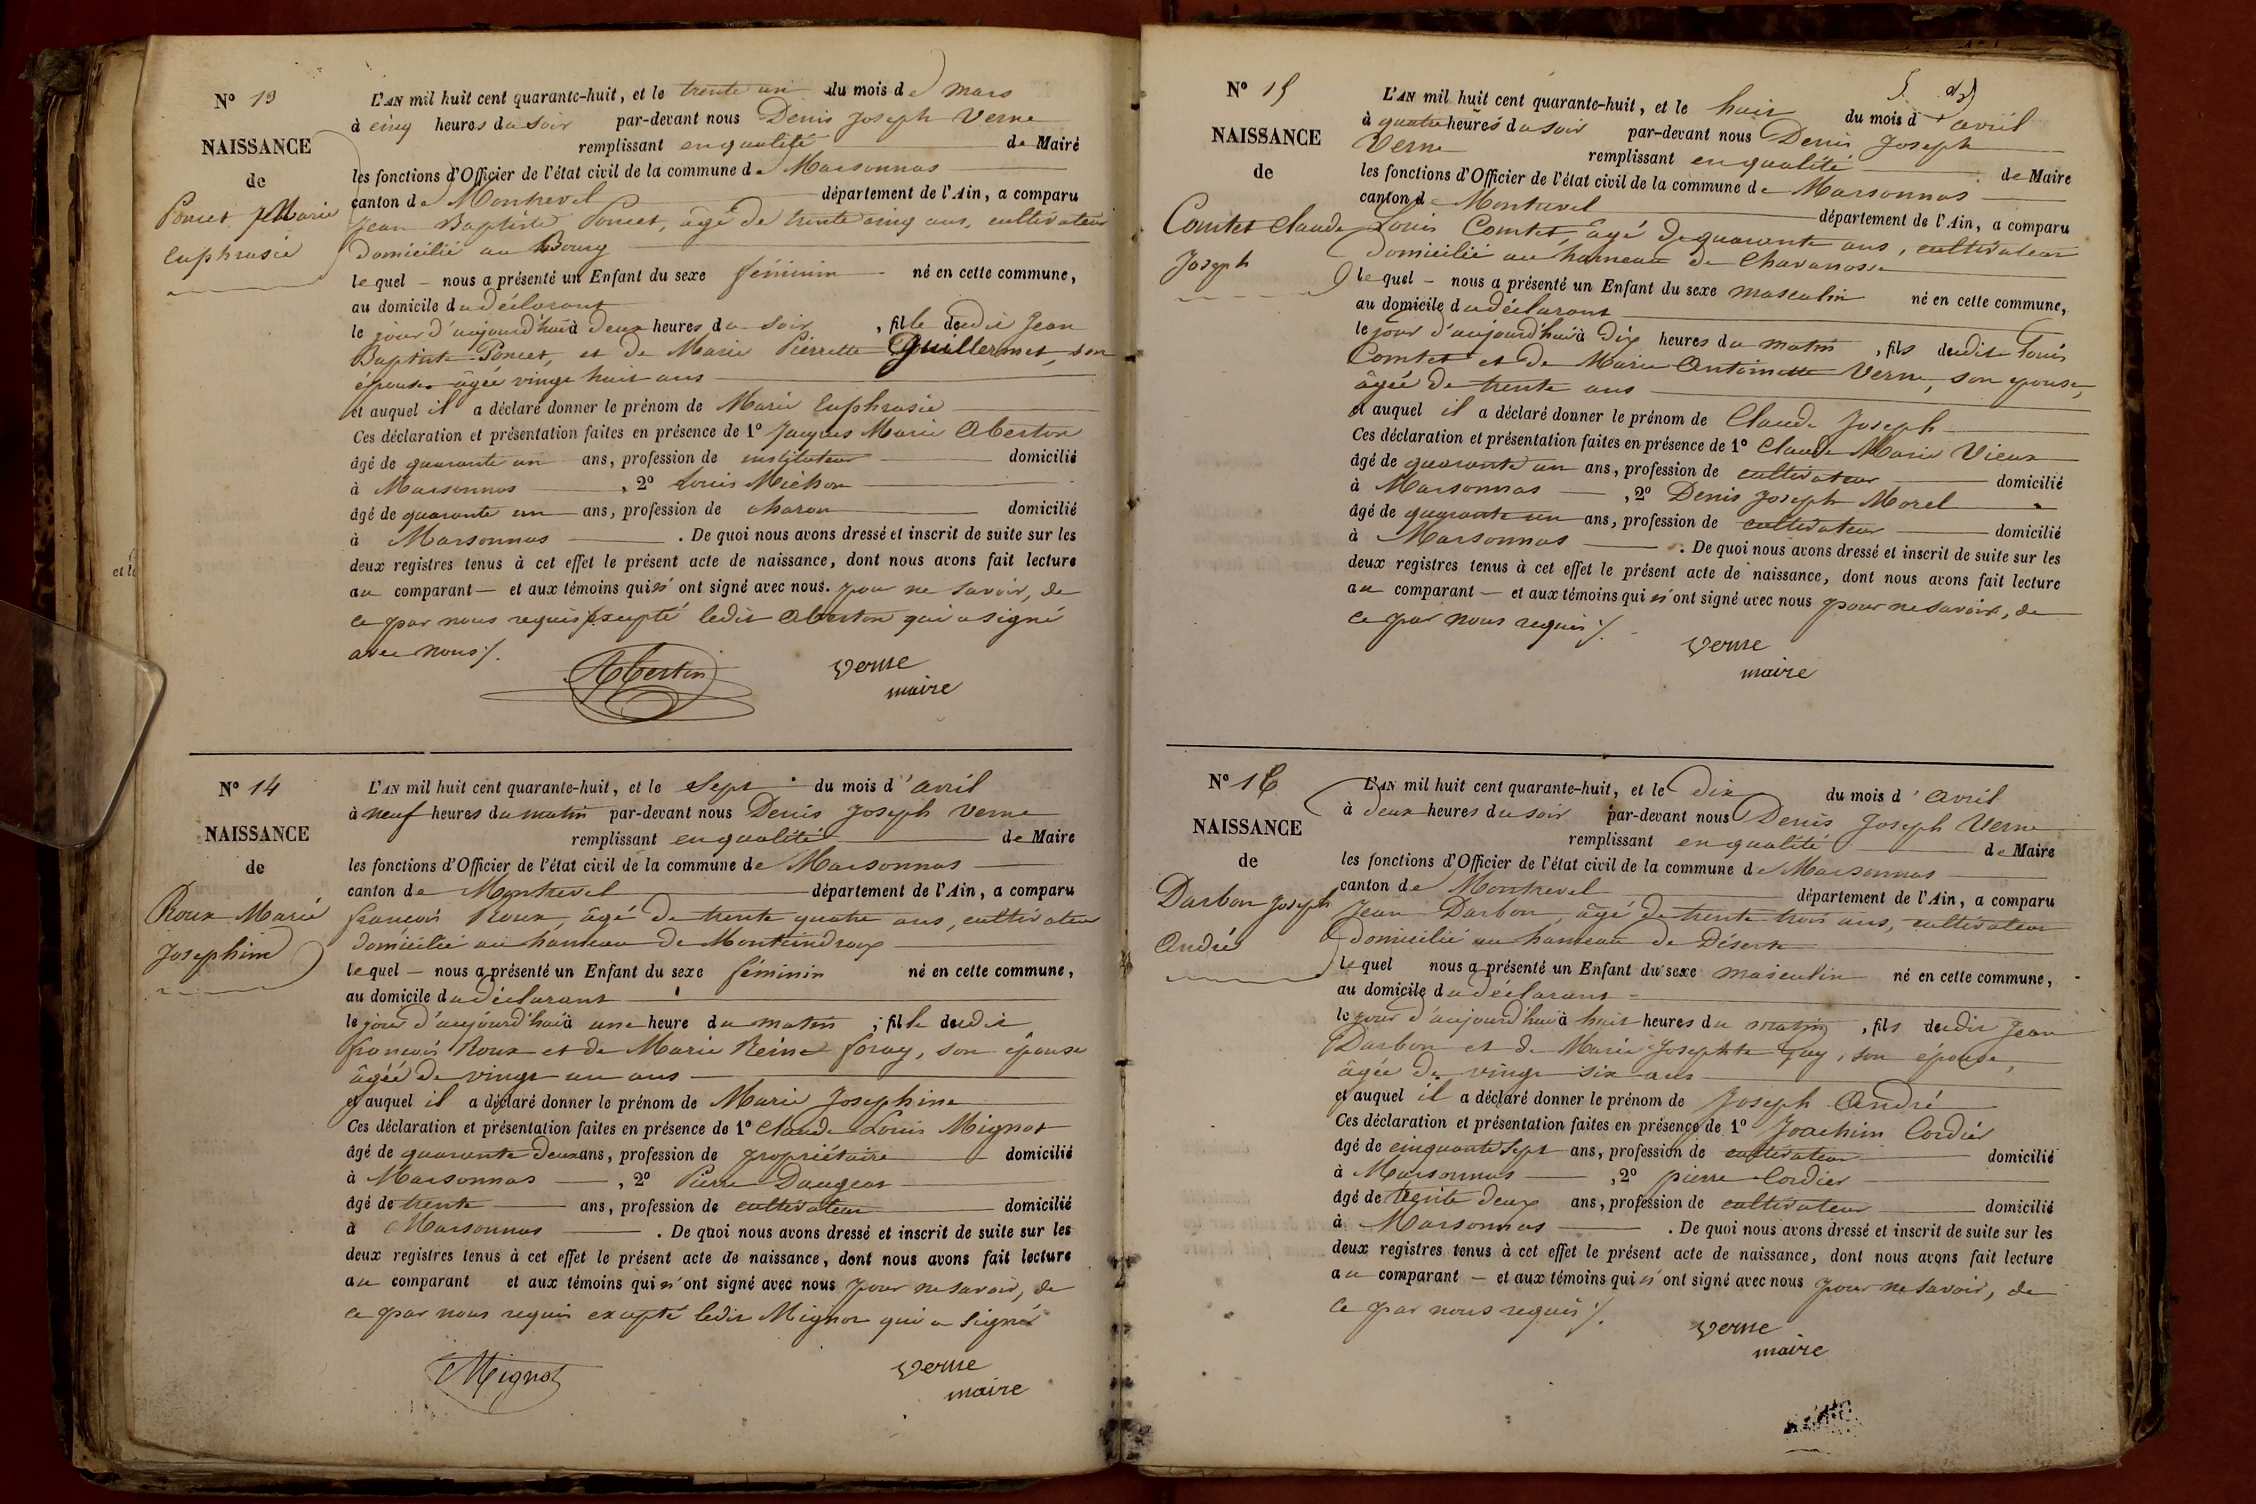 N° 13
NAISSANCE
de
Poncet Marie
Euphrasie
L'AN mil huit cent quarante-huit, et le trente un du mois de mars
à cinq heures du soir par-devant nous Denis Joseph Verne
remplissant en qualité de Maire
les fonctions d'Officier de l'état civil de la commune de Marsonnas
canton de Montrevel département de l'Ain, a comparu
Jean Baptiste Poncet, âgé de trente cinq ans, cultivateur
domicilié au Bourg
lequel – nous a présenté un Enfant du sexe féminin né en cette commune,
au domicile du déclarant
le jour d'aujourd'hui à deux heures du soir, fille dudit Jean
Baptiste Poncet, et de Marie Pierrette Guillermet, son
épouse âgée vingt huit ans
et auquel il a déclaré donner le prénom de Marie Euphrasie
Ces déclaration et présentation faites en présence de 1° Jacques Marie Aberton
âgé de quarante un ans, profession de instituteur domicilié
à Marsonnas, 2° Louis Michon
âgé de quarante un ans, profession de charon domicilié
à Marsonnas. De quoi nous avons dressé et inscrit de suite sur les
deux registres tenus à cet effet le présent acte de naissance, dont nous avons fait lecture
au comparant – et aux témoins qui n'ont signé avec nous. pour ne savoir, de
ce par nous requis excepté ledit Aberton qui a signé
avec nous ./.
Verne
maire
N° 14
NAISSANCE
de
Roux Marie
Josephine
L'AN mil huit cent quarante-huit, et le sept du mois d'avril
à neuf heures du matin par-devant nous Denis Joseph Verne
remplissant en qualité de Maire
les fonctions d'Officier de l'état civil de la commune de Marsonnas
canton de Montrevel département de l'Ain, a comparu
françois Roux, âgé de trente quatre ans, cultivateur
domicilié au hameau de Monteindroux
lequel – nous a présenté un Enfant du sexe féminin né en cette commune,
au domicile du déclarant
le jour d'aujourd'hui à une heure du matin, fille dudit
françois Roux et de Marie Reine foray, son épouse
âgée de vingt un ans
et auquel il a déclaré donner le prénom de Marie Josephine
Ces déclaration et présentation faites en présence de 1° Claude Louis Mignot
âgé de quarante deux ans, profession de propriétaire domicilié
à Marsonnas, 2° Pierre Daugeat
âgé de trente ans, profession de cultivateur domicilié
à Marsonnas. De quoi nous avons dressé et inscrit de suite sur les
deux registres tenus à cet effet le présent acte de naissance, dont nous avons fait lecture
au comparant et aux témoins qui n'ont signé avec nous pour ne savoir, de
ce par nous requis excepté ledit Mignot qui a signé
Mignot
Verne
maire
N° 15
NAISSANCE
de
Comtet Claude
Joseph
L'AN mil huit cent quarante-huit, et le huit du mois d'avril
à quatre heures du soir par-devant nous Denis Joseph
Verne remplissant en qualité de Maire
les fonctions d'Officier de l'état civil de la commune de Marsonnas
canton de Montrevel département de l'Ain, a comparu
Louis Comtet, âgé de quarante ans, cultivateur
domicilié au hameau de Chavanosse
lequel – nous a présenté un Enfant du sexe masculin né en cette commune,
au domicile du déclarant
le jour d'aujourd'hui à Dix heures du matin, fils dudit Louis
Comtet et de Marie Antoinette Verne, son épouse,
âgée de trente ans
et auquel il a déclaré donner le prénom de Claude Joseph
Ces déclaration et présentation faites en présence de 1° Claude Marie Vieux
âgé de quarante un ans, profession de cultivateur domicilié
à Marsonnas, 2° Denis Joseph Morel
âgé de quarante un ans, profession de cultivateur domicilié
à Marsonnas. De quoi nous avons dressé et inscrit de suite sur les
deux registres tenus à cet effet le présent acte de naissance, dont nous avons fait lecture
au comparant – et aux témoins qui n'ont signé avec nous pour ne savoir, de
ce par nous requis ./.
Verne
maire
N° 16
NAISSANCE
de
Darbon Joseph
André
L'AN mil huit cent quarante-huit, et le dix du mois d'avril
à deux heures du soir par-devant nous Denis Joseph Verne
remplissant en qualité de Maire
les fonctions d'Officier de l'état civil de la commune de Marsonnas
canton de Montrevel département de l'Ain, a comparu
Jean Darbon, âgé de trente trois ans, cultivateur
domicilié au hameau de Déserte
lequel nous a présenté un Enfant du sexe masculin né en cette commune,
au domicile du déclarant
le jour d'aujourd'hui à huit heures du matin, fils dudit Jean
Darbon et de Marie Josephte Guy, son épouse,
âgée de vingt six ans
et auquel il a déclaré donner le prénom de Joseph André
Ces déclaration et présentation faites en présence de 1° Joachim Cordier
âgé de cinquante sept ans, profession de cultivateur domicilié
à Marsonnas, 2° pierre Cordier
âgé de trente deux ans, profession de cultivateur domicilié
à Marsonnas. De quoi nous avons dressé et inscrit de suite sur les
deux registres tenus à cet effet le présent acte de naissance, dont nous avons fait lecture
au comparant – et aux témoins qui n'ont signé avec nous pour ne savoir, de
ce par nous requis ./.
Verne
maire